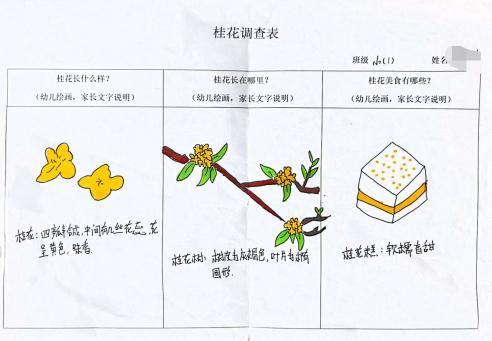 桂花调查表
班级 小(1) 姓名
桂花长什么样?
(幼儿绘画,家长文字说明)
桂花长在哪里?
(幼儿绘画,家长文字说明)
桂花美食有哪些?
(幼儿绘画,家长文字说明)
桂花:四瓣组成,中间有几丝花蕊,花
呈黄色,味香.
桂花树 树皮为灰褐色,叶片为椭
圆形.
桂花糕:软糯香甜